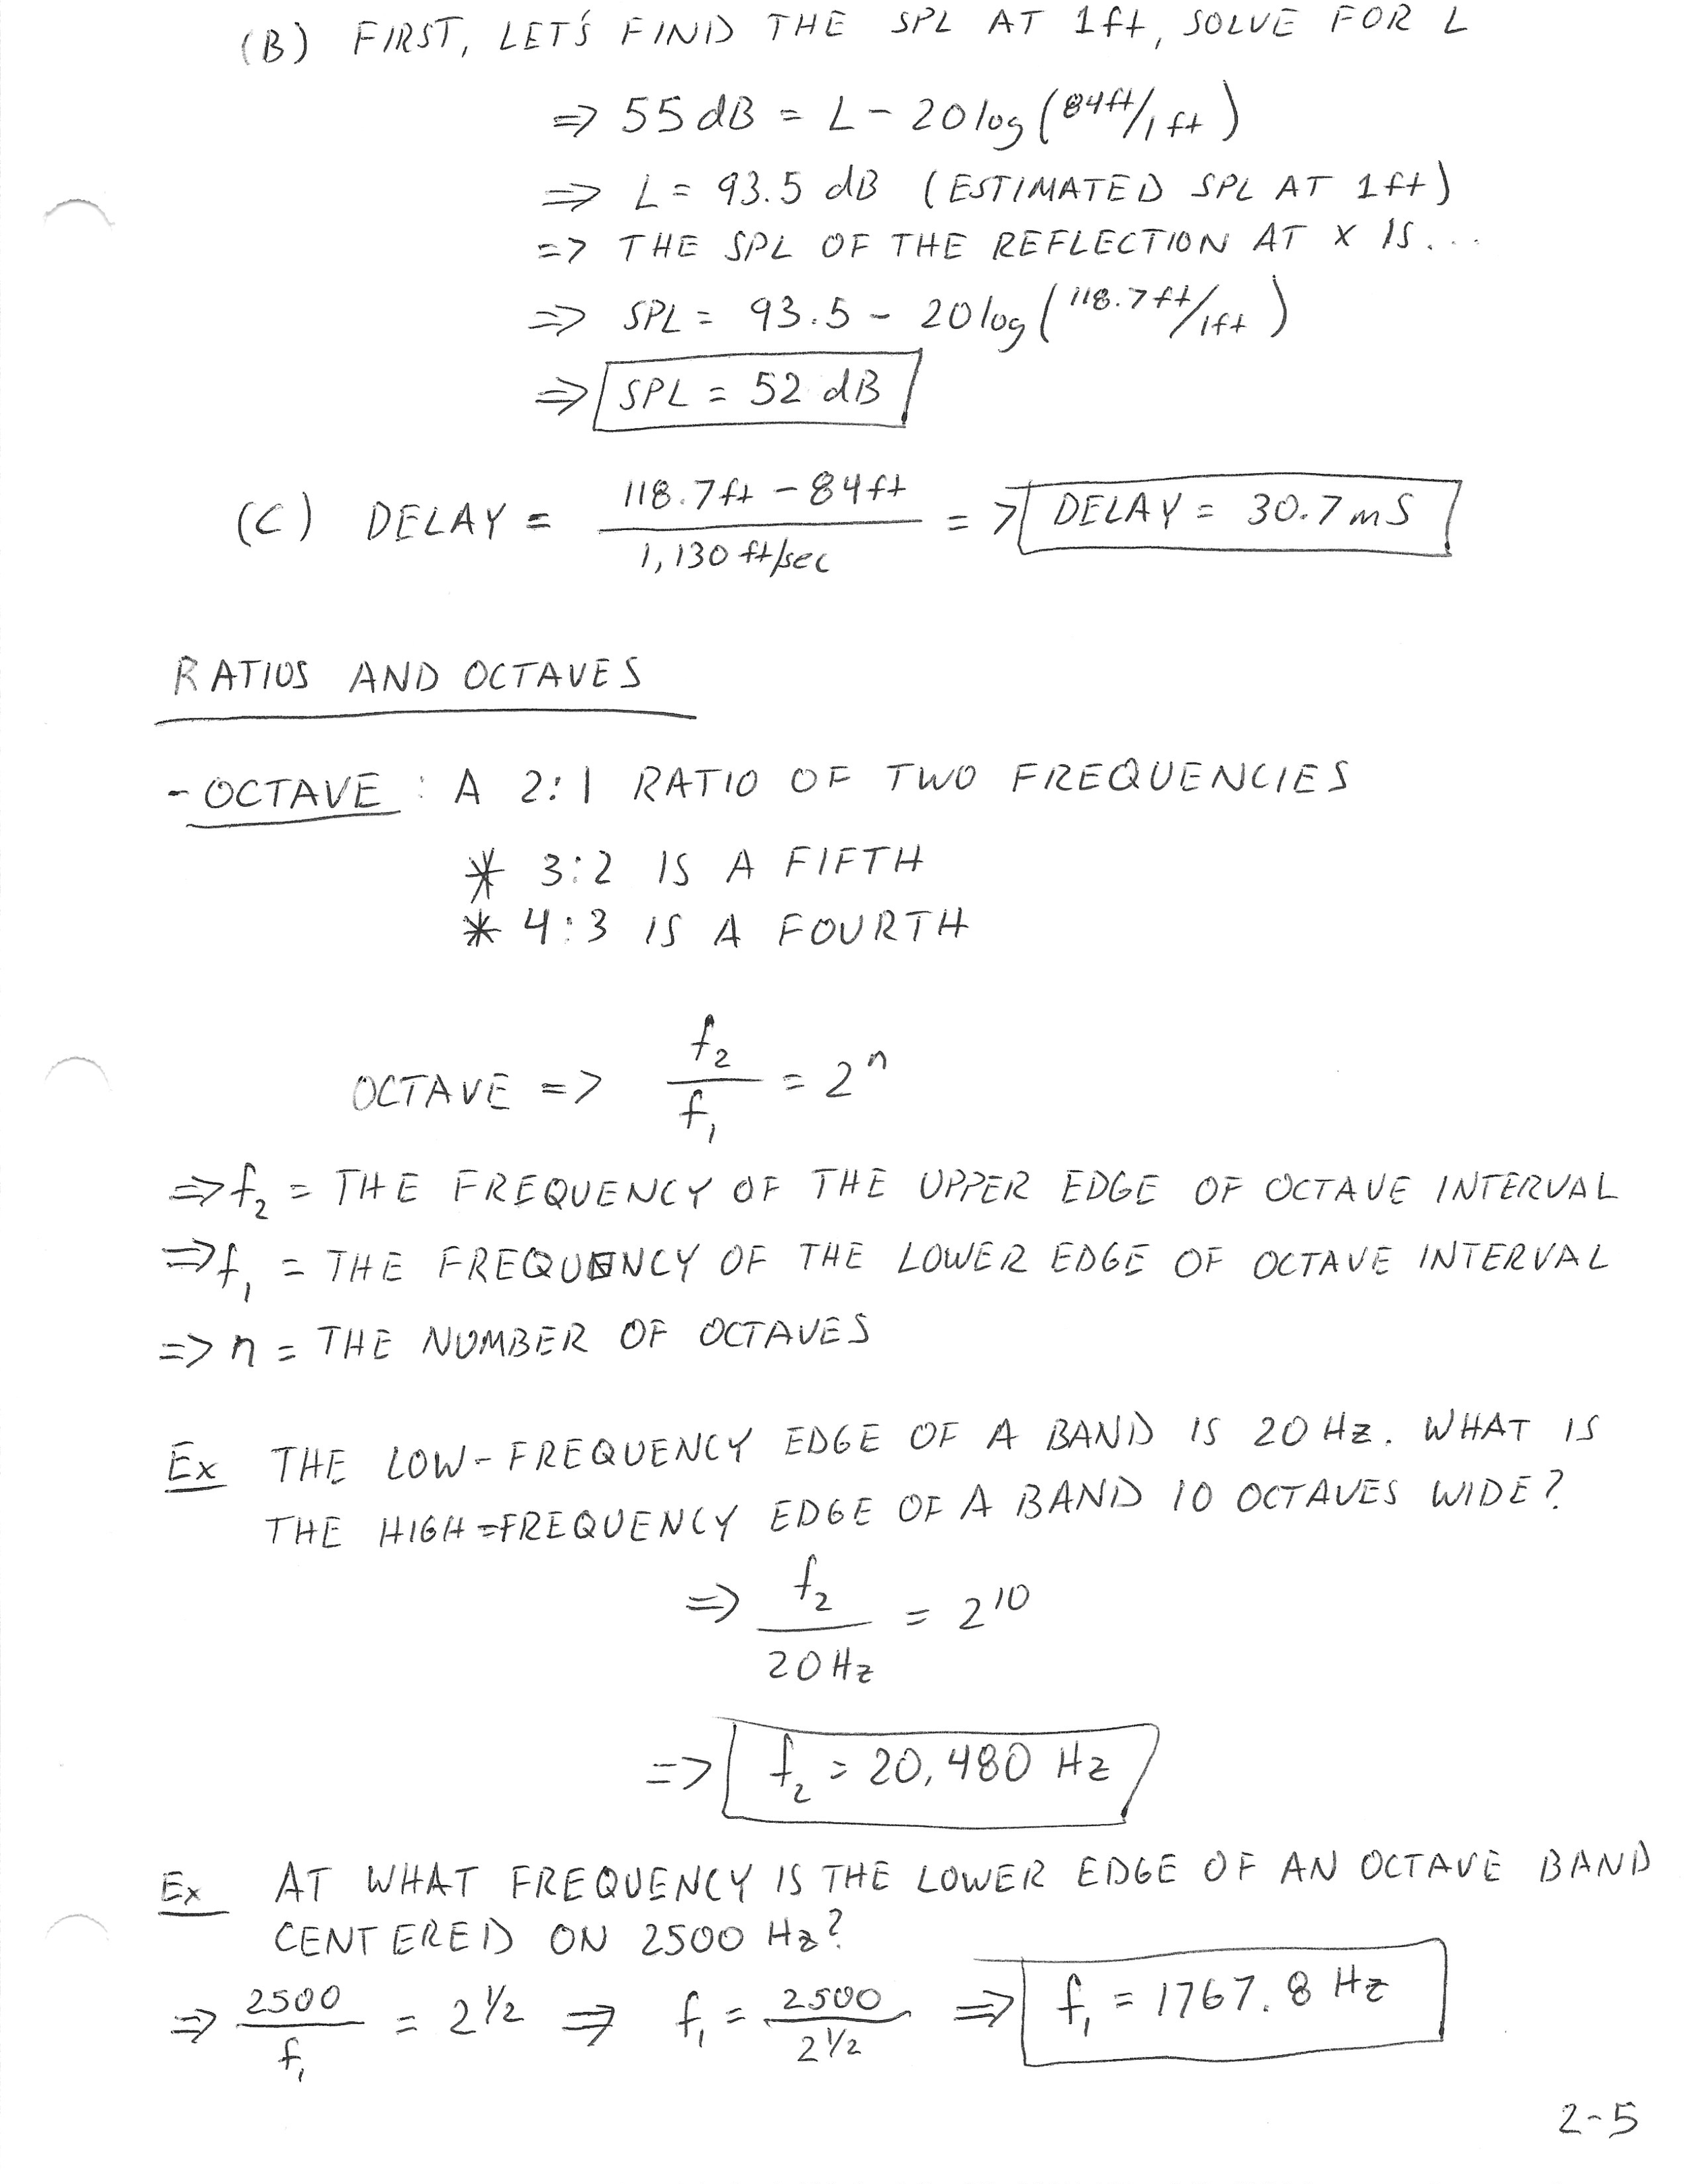 (B) FIRST, LET'S FIND THE SPL AT 1ft, SOLVE FOR L
=> 55 dB = L - 20 log (84ft/1ft)
=> L = 93.5 dB (ESTIMATED SPL AT 1ft)
=> THE SPL OF THE REFLECTION AT X IS...
=> SPL = 93.5 - 20 log (118.7ft/1ft)
=> SPL = 52 dB
(C) DELAY = (118.7ft - 84ft)/(1,130 ft/sec) => DELAY = 30.7 mS
RATIOS AND OCTAVES
- OCTAVE: A 2:1 RATIO OF TWO FREQUENCIES
* 3:2 IS A FIFTH
* 4:3 IS A FOURTH
OCTAVE => f₂/f₁ = 2ⁿ
=> f₂ = THE FREQUENCY OF THE UPPER EDGE OF OCTAVE INTERVAL
=> f₁ = THE FREQUENCY OF THE LOWER EDGE OF OCTAVE INTERVAL
=> n = THE NUMBER OF OCTAVES
Ex THE LOW-FREQUENCY EDGE OF A BAND IS 20 Hz. WHAT IS
THE HIGH=FREQUENCY EDGE OF A BAND 10 OCTAVES WIDE?
=> f₂/20Hz = 2¹⁰
=> f₂ = 20,480 Hz
Ex AT WHAT FREQUENCY IS THE LOWER EDGE OF AN OCTAVE BAND
CENTERED ON 2500 Hz?
=> 2500/f₁ = 2^½ => f₁ = 2500/2^½ => f₁ = 1767.8 Hz
2-5